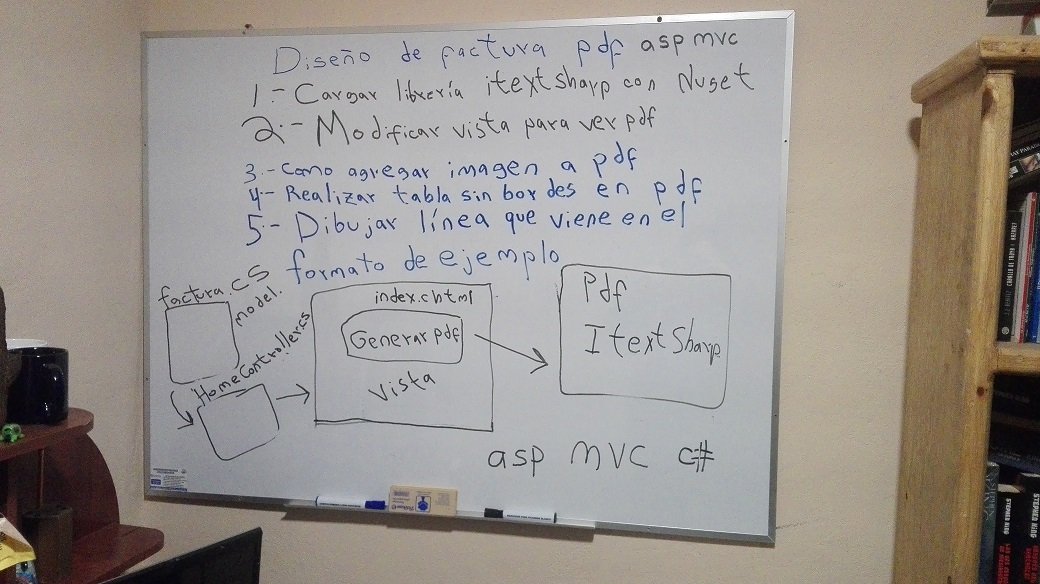 Diseño de factura pdf asp mvc
1.- Cargar librería itextSharp con Nuget
2.- Modificar vista para ver pdf
3.- Como agregar imagen a pdf
4.- Realizar tabla sin bordes en pdf
5.- Dibujar línea que viene en el
formato de ejemplo
factura.cs
model.
HomeController.cs
index.chtml
Generar pdf
vista
Pdf
ItextSharp
asp mvc c#
STEPHEN KING
STEPHEN KING